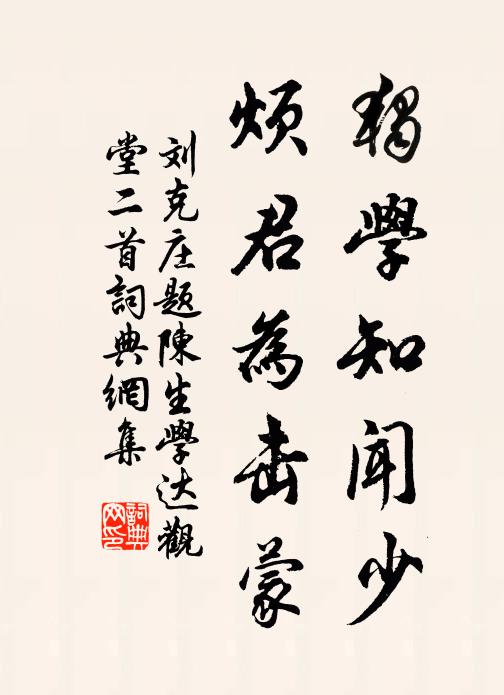 獨學知聞少
煩君為击蒙
刘克庄题陳生學达觀
堂二首詞典網集
詞典
网印